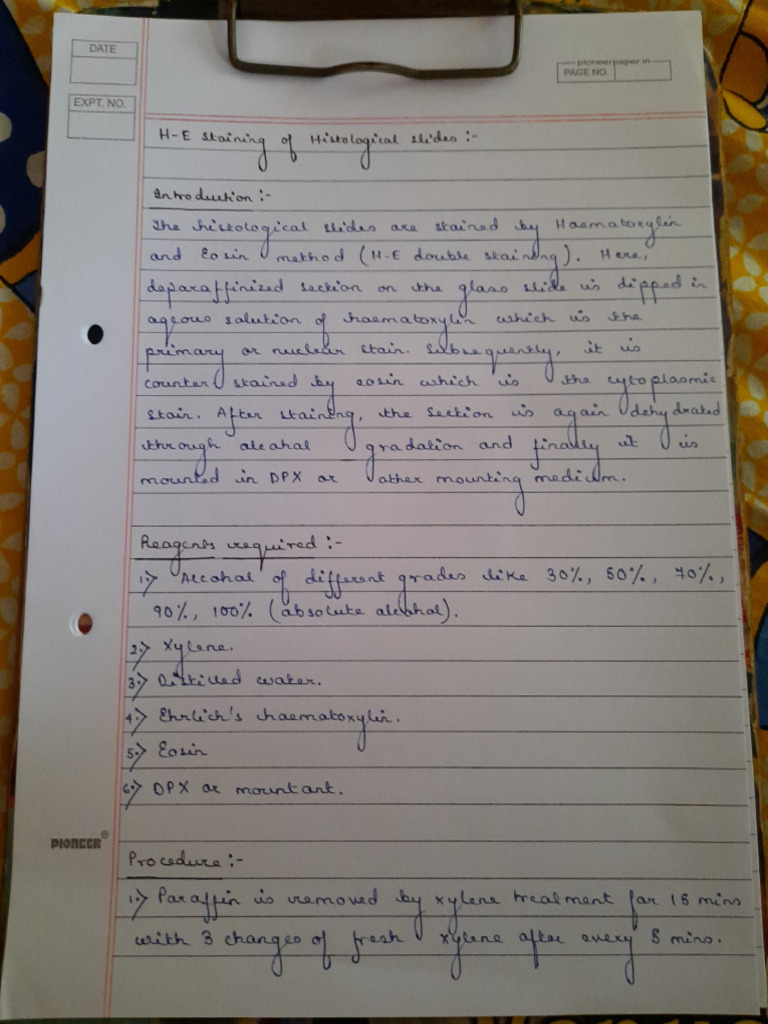 DATE
pioneerpaper.in
PAGE NO.
EXPT. NO.
H-E staining of Histological slides :-
Introduction :-
The histological slides are stained by Haematoxylin
and Eosin method (H-E double staining). Here,
deparaffinized section on the glass slide is dipped in
aqeous solution of haematoxylin which is the
primary or nuclear stain. Subsequently, it is
counter stained by eosin which is the cytoplasmic
stain. After staining, the section is again dehydrated
through alcohal gradation and finally it is
mounted in DPX or other mounting medium.
Reagents required :-
1.> Alcohal of different grades like 30%, 50%, 70%,
90%, 100% (absolute alcohal).
2.> Xylene.
3.> Distilled water.
4.> Ehrlich's haematoxylin.
5.> Eosin
6.> DPX or mountant.
PIONEER®
Procedure :-
1.> Paraffin is removed by xylene treatment for 15 mins
with 3 changes of fresh xylene after every 5 mins.